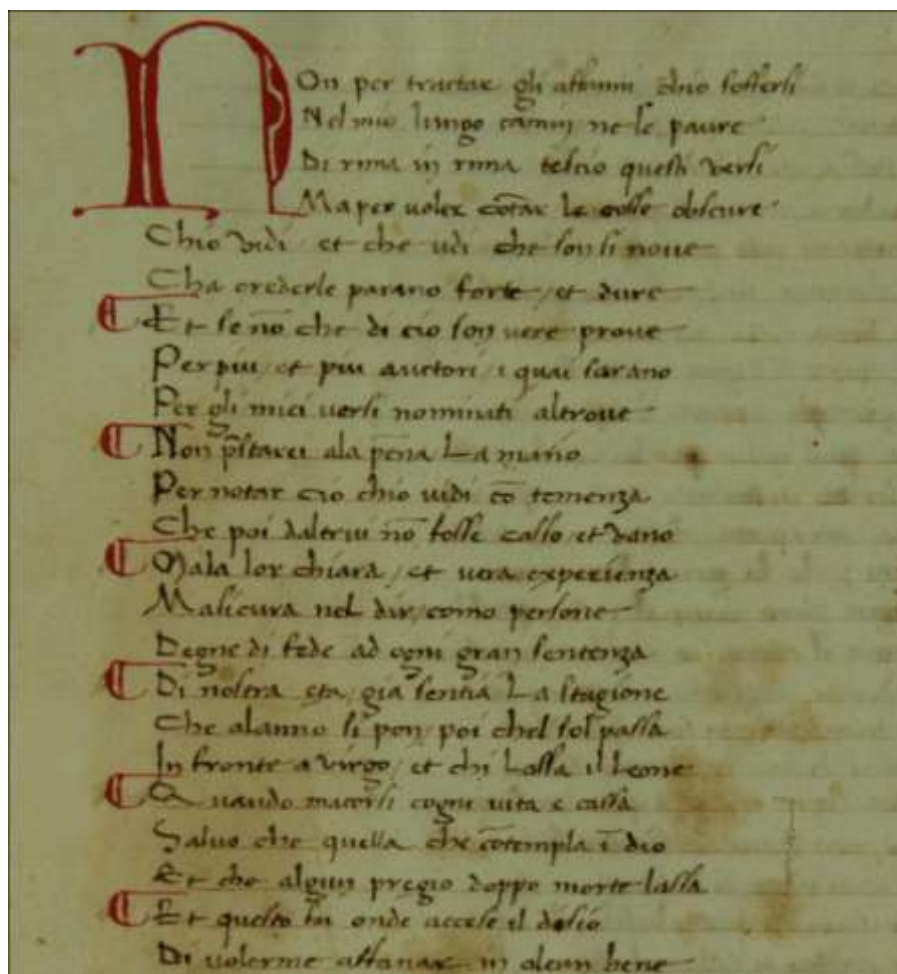 Non per tractar gli affanni chio soffersi
Nel mio lungo camin ne le paure
Di rima in rima tescio questi versi
Ma per voler cōtar le cosse obscure
Chio vidi / et che udi che son si nove
Cha crederle parano forte / et dure
Et se nō che di cio son vere prove
Per piu / et piu auctori / i quai sarano
Per gli miei versi nominati altrove
Non p̄starei ala pēna La mano
Per notar cio chio vidi cō temenza
Che poi daltrui nō fosse casso et vano
Mala lor chiara / et vera experienza
Masicura nel dir / como persone
Degne di fede ad ogni gran sentenza
Di nostra eta / gia sentia La stagione
Che alanno si pon / poi chel sol passa
In fronte a virgo / et chi Lassa il Leone
Quando macorsi cogni vita e cassa
Salvo che quella che cōtempla ī dio
Et che algun pregio doppo morte lassa
Et questo fu onde accese il desio
Di volerme affanar in alcun bene